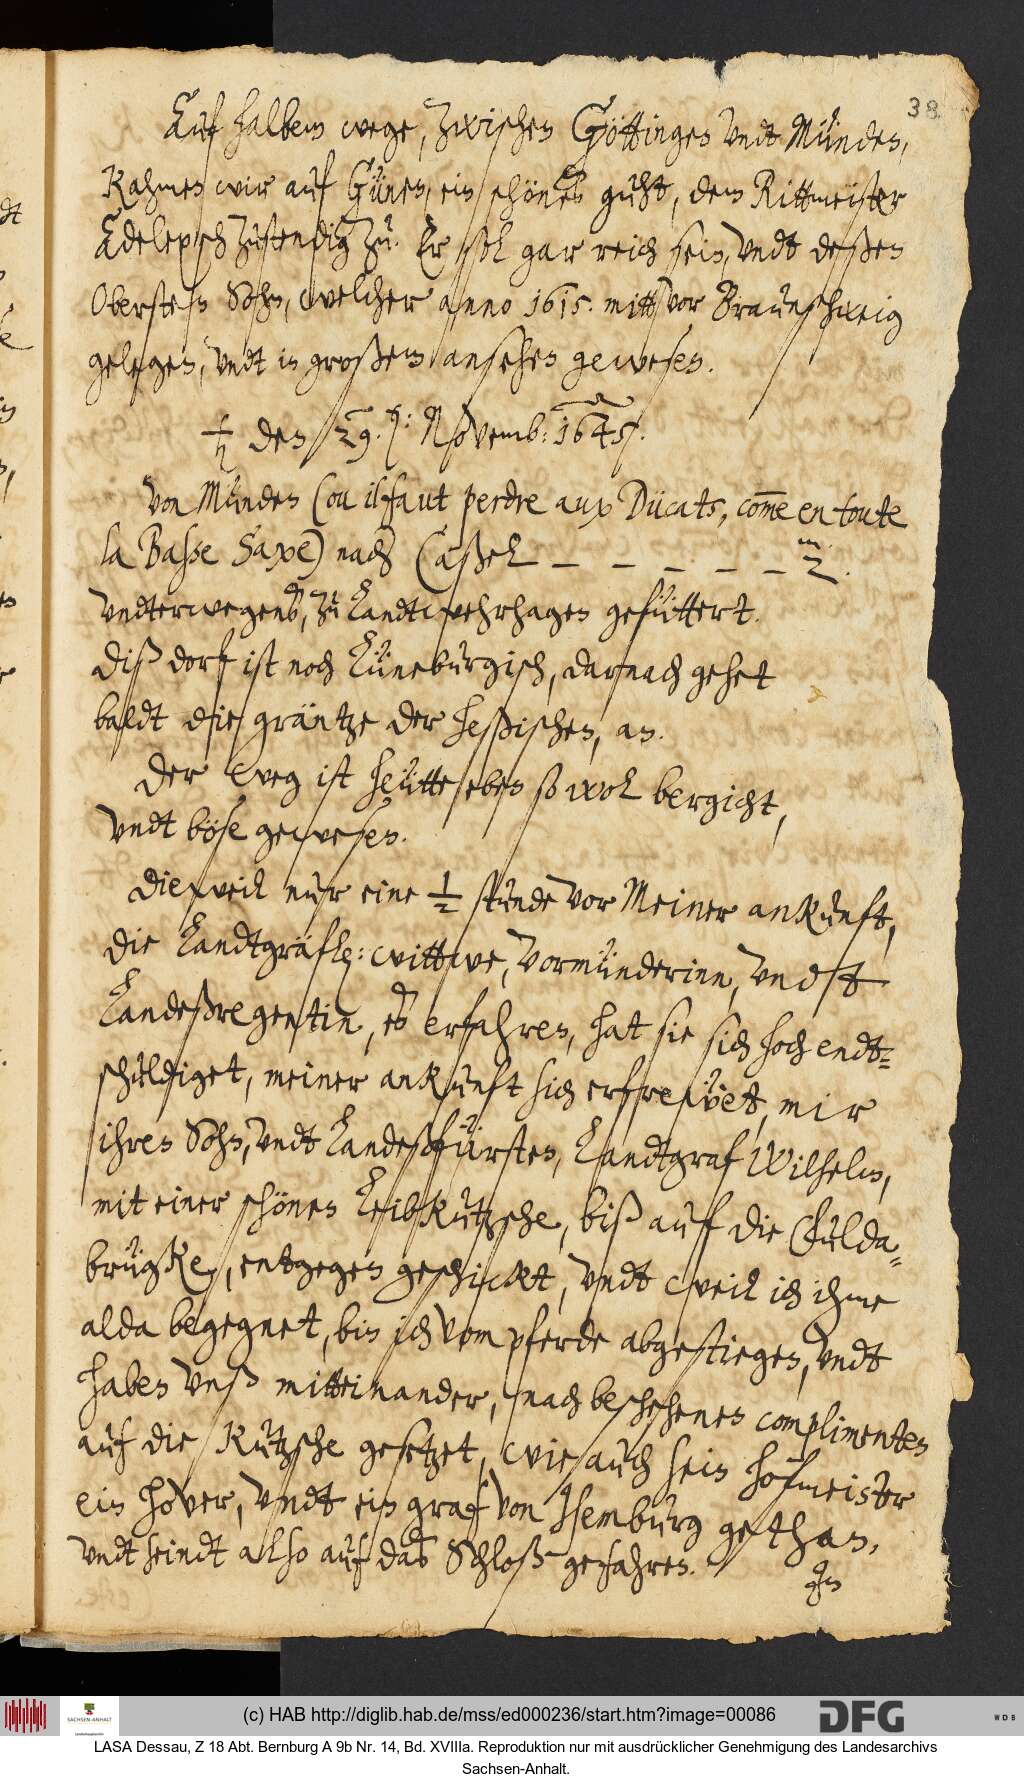 38.
Auf halbem wege, zwischen Göttingen undt Münden,
kahmen wir auf Günen, ein schönes guht, dem Rittmeister
Adelepsch zustendig zu. Er soll gar reich sein, undt deßen
Obersten Sohn, welcher anno 1615. mitt vor Braunschweig
gelegen, undt in großem ansehen gewesen.
♄ den 29. 9: Novemb: 1645.
Von Münden (ou il faut perdre aux Ducats, com̄e en toute
la Basse Saxe) nach Caßel – – – – – – 2.
m
undterwegens, zu Landtwehrhagen gefüttert.
Diß dorf ist noch Lüneburgisch, darnach gehet
baldt die gräntze der heßischen, an.
Der weg ist heütte eben so wol bergicht,
undt böse gewesen.
Dieweil nur eine ½ stunde vor Meiner ankunft,
die Landtgräfl: wittwe, vormünderinn, undt
Landeßregentin, es erfahren, hat sie sich hoch endt-
schuldiget, meiner ankunft sich erfrewet, mir
ihren Sohn, undt Landeßfürsten, Landtgraf Wilhelm,
mit einer schönen Leibkutzsche, biß auf die Fulda-
brügke, entgegen geschickt, undt weil ich ihme
alda begegnet, bin ich vom pferde abgestiegen, undt
haben unß mitteinander, nach beschehenen complimenten
auf die kutzsche gesetzet, wie auch sein hofmeister
ein Hover, undt ein graf von Isemburg gethan,
undt seindt also auf das Schloß gefahren.
In
(c) HAB http://diglib.hab.de/mss/ed000236/start.htm?image=00086
SACHSEN-ANHALT
Landeshauptarchiv
DFG
WDB
LASA Dessau, Z 18 Abt. Bernburg A 9b Nr. 14, Bd. XVIIIa. Reproduktion nur mit ausdrücklicher Genehmigung des Landesarchivs
Sachsen-Anhalt.